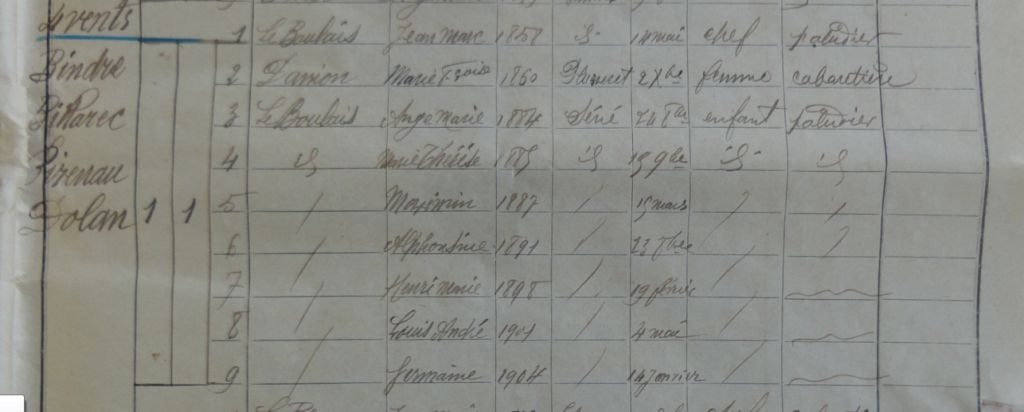 4 vents
1 Le Boulais Jean Marc 1858 id 14 mai chef paludier
Bindre
2 Danion Marie Fçoise 1860 27 Xbre femme cabaretière
Bilharec
3 Le Boulais Ange Marie 1884 Séné 7bre enfant paludier
4 id Marie Thérèse 1885 id 15 9bre id id
Bizenau
Dolan 1 1 5 / Maximin 1887 / 15 mars / /
6 / Alphonsine 1891 / 23 7bre / /
7 / Henri Marie 1898 / 19 février /
8 / Louis André 1901 / 4 mai /
9 / Germaine 1904 / 14 Janvier /